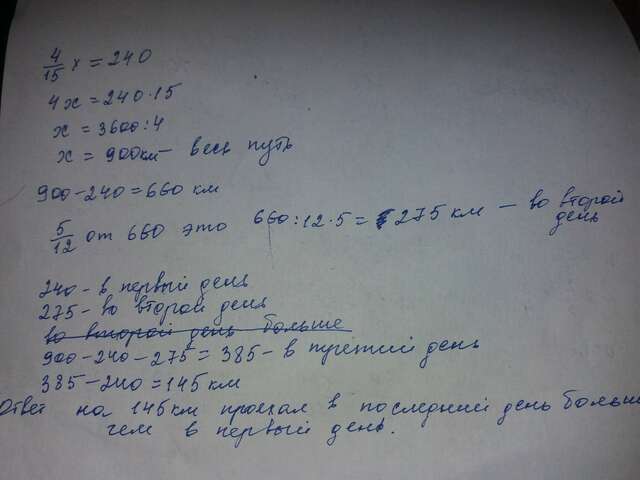 4/15 x = 240
4x = 240·15
x = 3600:4
x = 900км – весь путь
900-240=660 км
5/12 от 660 это 660:12·5= 275 км – во второй день
240 - в первый день
275 - во второй день
во второй день больше
900-240-275=385 - в третий день
385-240=145км
Ответ на 145км проехал в последний день больше
чем в первый день.